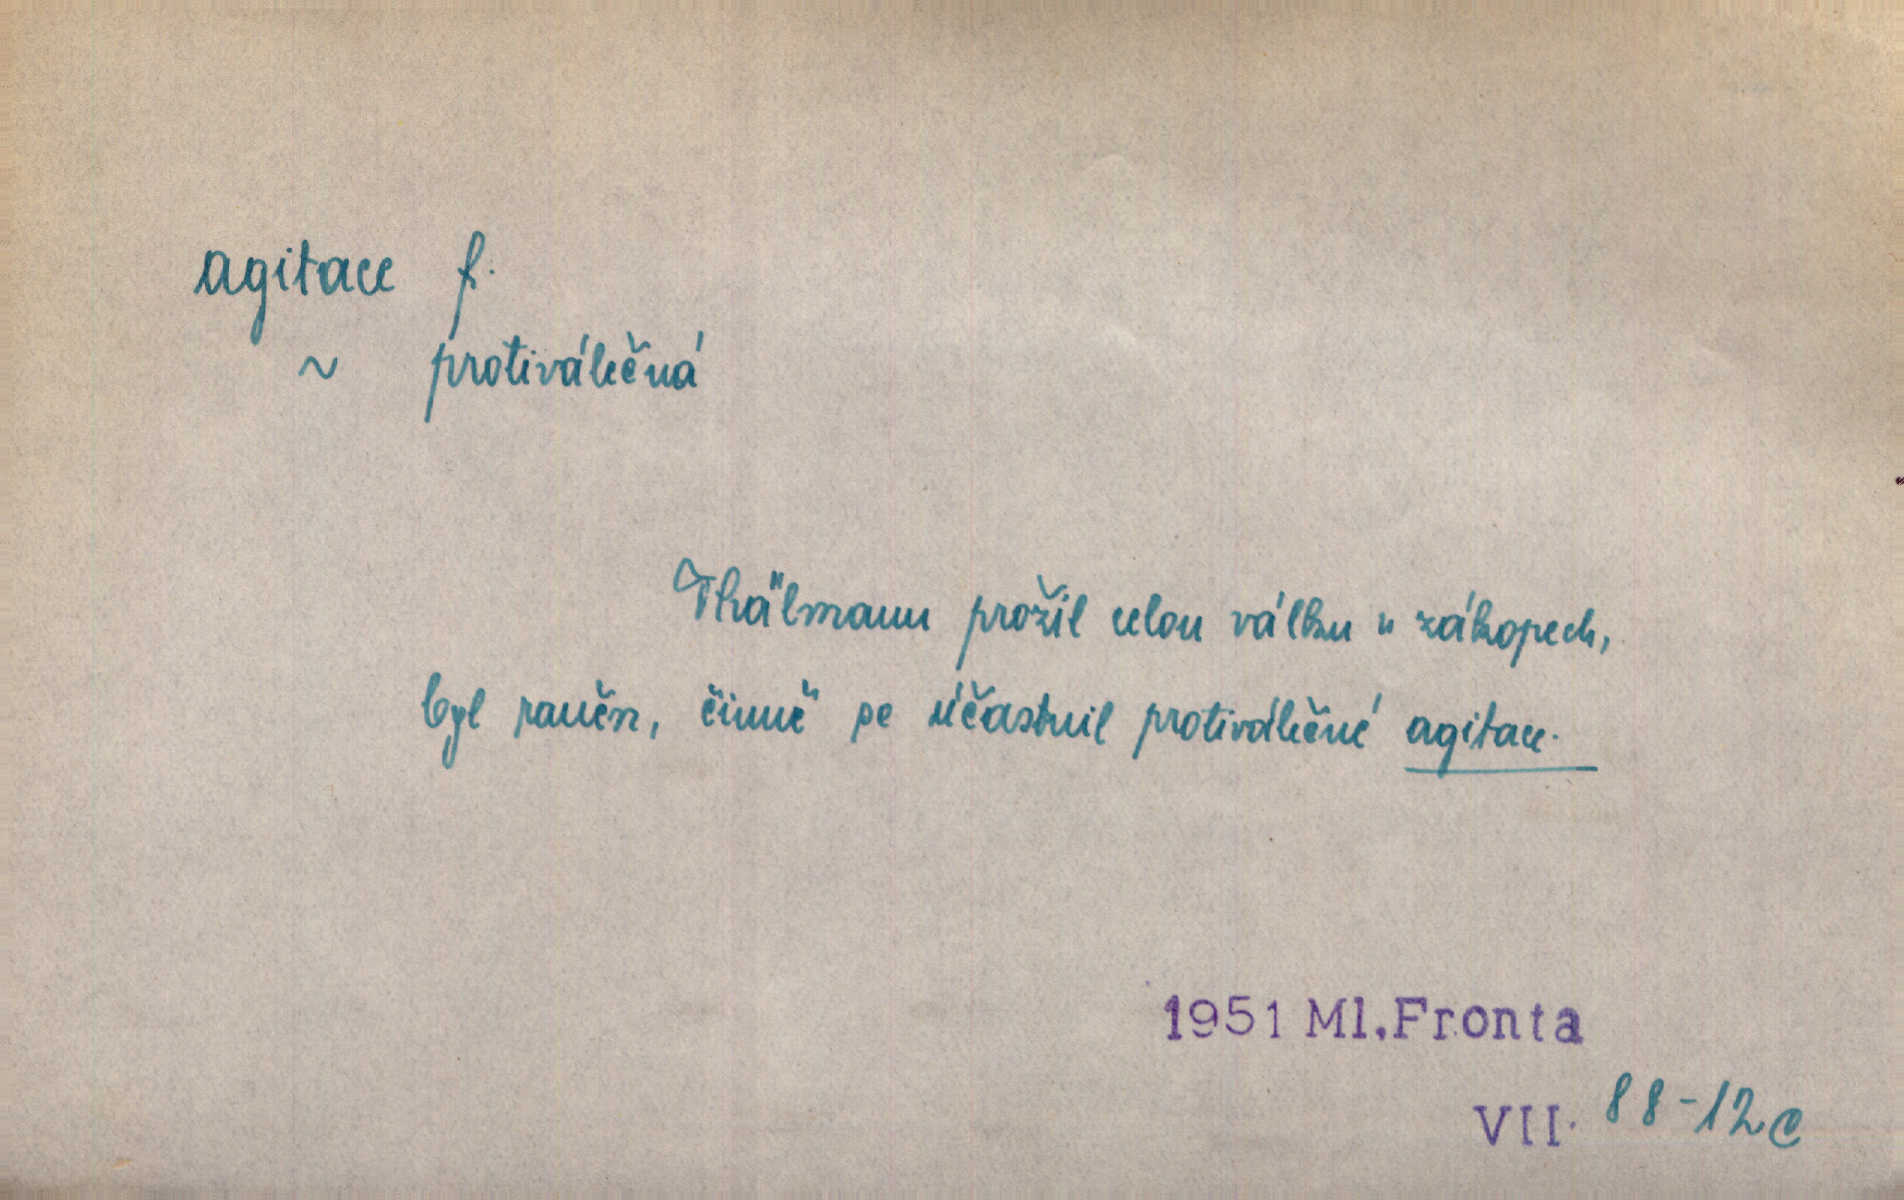 agitace f.
~ protiválečná
Thälmann prožil celou válku v zákopech,
byl raněn, činně se účastnil protiválečné agitace.
1951 Ml.Fronta
VII. 88-12c